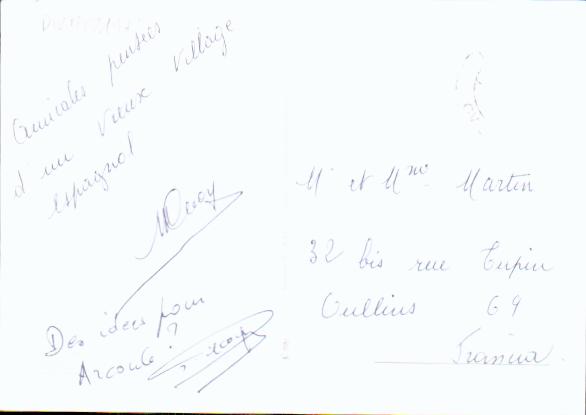 Amicales pensées
d'un vieux village
espagnol
Des idées pour
Arcoule ?
M et Mme Martin
32 bis rue Tupin
Oullins 69
Francia